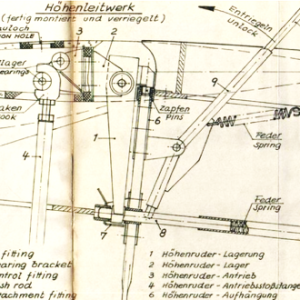 Höhenleitwerk
(fertig montiert und verriegelt)
Entriegeln
unlock
ON HOLE
3
2
lager
earings
9
aken
ook
6
Zapfen
Pins
Feder
Spring
1
4
Feder
Spring
7
8
fitting
aring bracket
ntrol fitting
sh rod
tachment fitting
1 Höhenruder-Lagerung
2 Höhenruder-Lager
3 Höhenruder-Antrieb
4 Höhenruder-Antriebsstoßstang
6 Höhenruder-Aufhängung